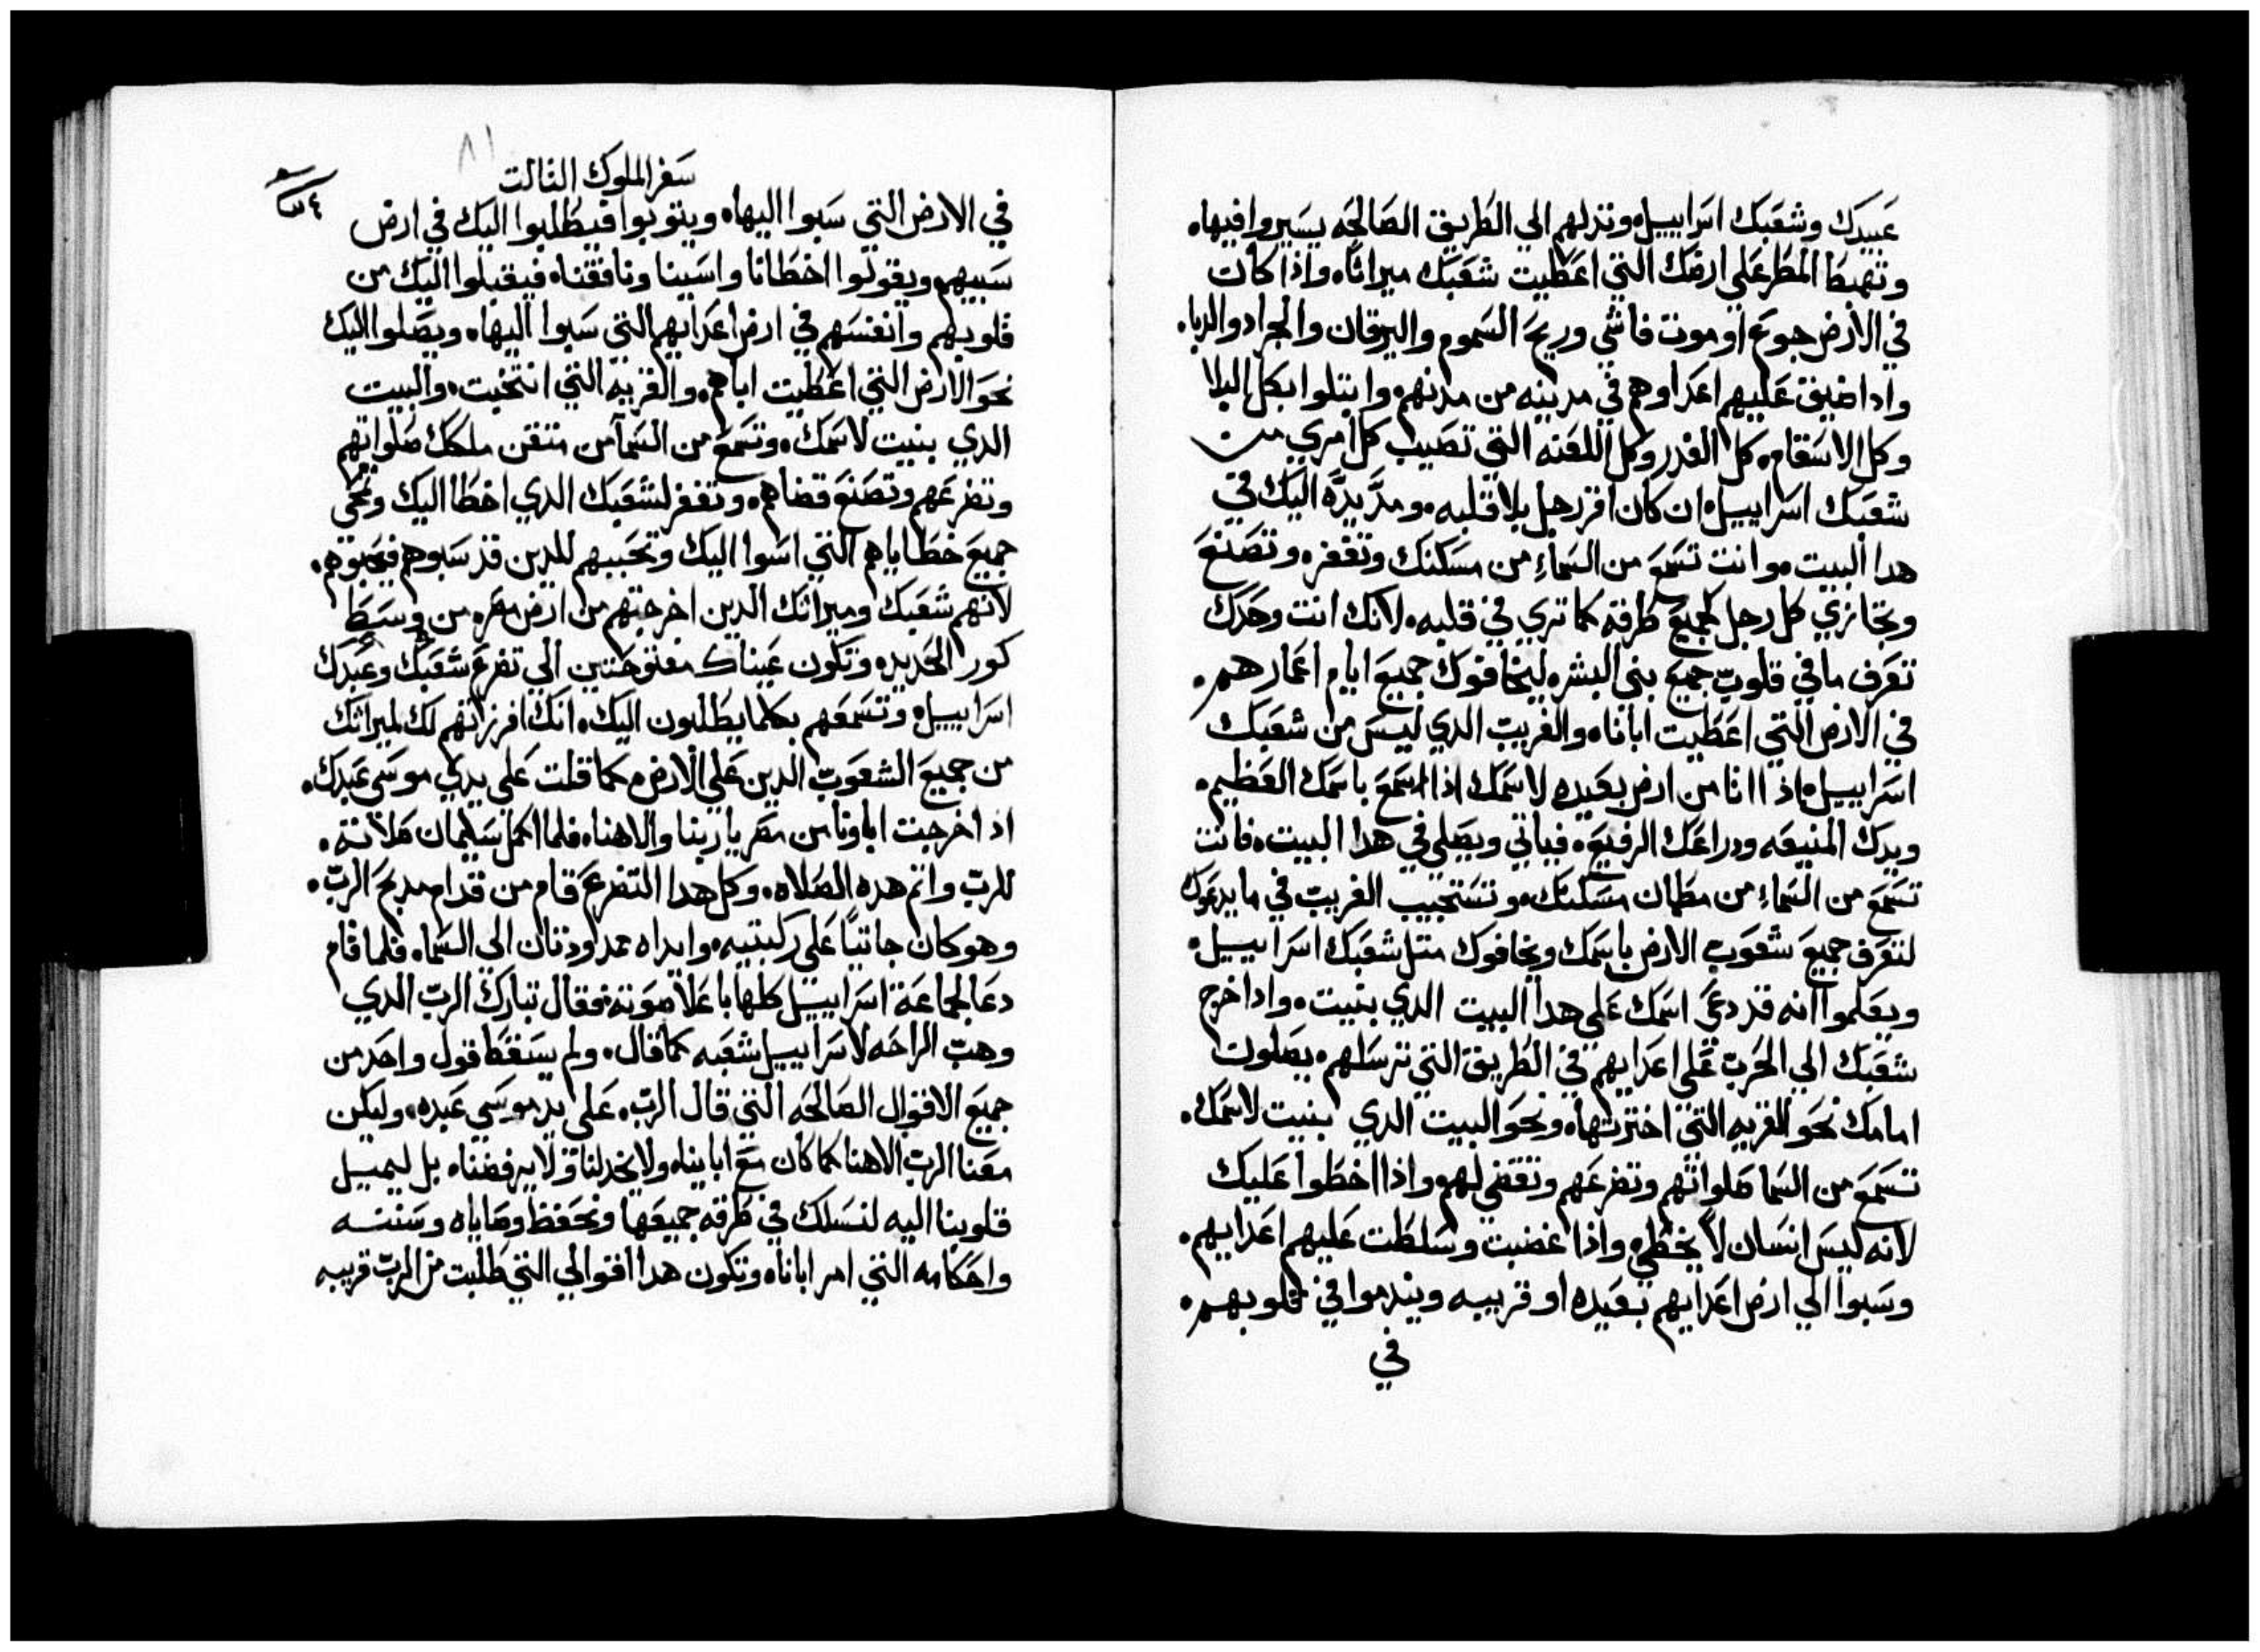 عبيدك وشعبك اسراييل وتدلهم الي الطريق الصالحه يسيروا فيها.
وتهبط المطر علي ارضك التي اعطيت شعبك ميراثا. واذا كان
في الارض جوع او موت فاشي وريح السموم واليرقان والجراد والدبا.
وادا ضيق عليهم اعداوهم في مدينه من مدنهم. وابتلوا بكل البلا
وكل الاسقام. كل الغدر وكل اللعنه التي تصيب كل امري من
شعبك اسراييل. ان كان اقر رجل بلا قلبه. ومد يده اليك في
هدا البيت. وانت تسمع من السماء من مسكنك وتغفر. وتصنع
وتجازي كل رجل كجميع طرقه كما تري في قلبه. لانك انت وحدك
تعرف ما في قلوب جميع بني البشر. ليخافوك جميع ايام اعمارهم.
في الارض التي اعطيت ابانا. والغريب الدي ليس من شعبك
اسراييل. اذا اتا من ارض بعيده لاسمك اذا سمع باسمك العظيم.
ويدك المنيعه ودراعك الرفيع. فياتي ويصلي في هدا البيت. فانت
تسمع من السماء من مطمان مسكنك. وتستجيب الغريب في ما يدعوك
لتعرف جميع شعوب الارض باسمك ويخافوك متل شعبك اسراييل.
ويعلموا انه قد دعي اسمك علي هدا البيت الدي بنيت. وادا خرج
شعبك الي الحرب علي اعدايهم في الطريق التي ترسلهم. يصلون
امامك نحو القريه التي اخترتها. ونحو البيت الدي بنيت لاسمك.
تسمع من السما صلواتهم وتضرعهم وتقضي لهم. واذا اخطوا عليك
لانه ليس انسان لا يخطي. واذا غضبت وسلطت عليهم اعدايهم.
وسبوا الي ارض اعدايهم بعيده او قريبه ويندموا في قلوبهم.
في
٨١
سفر الملوك التالت
في الارض التي سبوا اليها. ويتوبوا فيطلبوا اليك في ارض
سبيهم ويقولوا اخطانا واسينا ونافقنا. فيقبلوا اليك من
قلوبهم وانفسهم في ارض اعدايهم التي سبوا اليها. ويصلوا اليك
نحو الارض التي اعطيت اباهم. والقريه التي انتخبت. والبيت
الدي بنيت لاسمك. وتسمع من السما من متقن ملكك صلواتهم
وتضرعهم وتصنع قضاهم. وتغفر لشعبك الدي اخطا اليك وتمحي
جميع خطاياهم التي اسوا اليك وتحببهم للدين قد سبوهم فيحبوهم.
لانهم شعبك وميراتك الدين اخرجتهم من ارض مصر. من وسط
كور الحديد. وتكون عيناك مفتوحتين الي تضرع شعبك وعبدك
اسراييل. وتسمعهم بكلما يطلبون اليك. انك افرزتهم لك لميراتك
من جميع الشعوب الدين علي الارض. كما قلت علي يدي موسي عبدك.
اد اخرجت اباونا من مصر يا ربنا والاهنا. فلما اكمل سليمان صلاته.
للرب واتم هده الصلاه. وكل هدا التضرع قام من قدام مدبح الرب.
وهو كان جاتيا علي ركبتيه. وايداه ممدودتان الي السما. فلما قام
دعا لجماعة اسراييل كلها باعلا صوته. فقال تبارك الرب الدي
وهب الراحه لاسراييل شعبه كما قال. ولم يسقط قول واحد من
جميع الاقوال الصالحه التي قال الرب. علي يد موسي عبده. وليكن
معنا الرب الاهنا كما كان مع اباينا. ولا يخدلنا ولا يرفضنا. بل ليميل
قلوبنا اليه لنسلك في طرقه جميعها ونحفظ وصاياه وسننه
واحكامه التي امر ابانا. وتكون هدا اقوالي التي طلبت من الرب قريبه